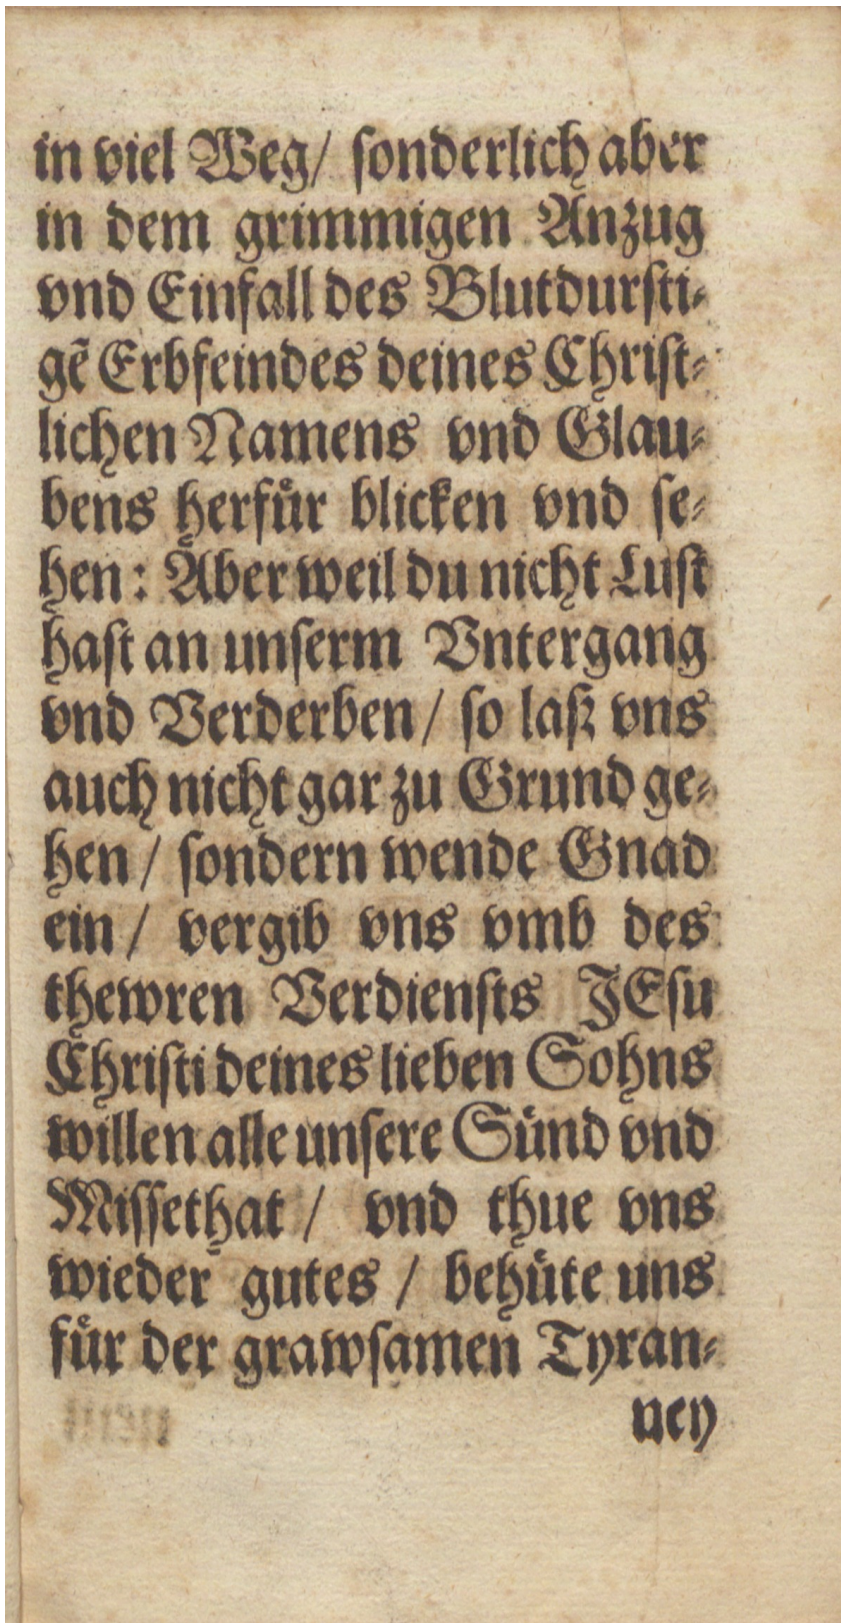 in viel Weg/ ſonderlich aber
in dem grimmigen Anzug
vnd Einfall des Blutdurſti⸗
gẽ Erbfeindes deines Chriſt⸗
lichen Namens vnd Glau⸗
bens herfuͤr blicken vnd ſe⸗
hen: Aber weil du nicht Luſt
haſt an unſerm Vntergang
vnd Verderben/ ſo laß vns
auch nicht gar zu Grund ge⸗
hen/ ſondern wende Gnad
ein/ vergib vns vmb des
thewren Verdienſts JEſu
Chriſti deines lieben Sohns
willen alle unſere Suͤnd vnd
Miſſethat/ vnd thue vns
wieder gutes/ behuͤte uns
fuͤr der grawſamen Tyran⸗
ney